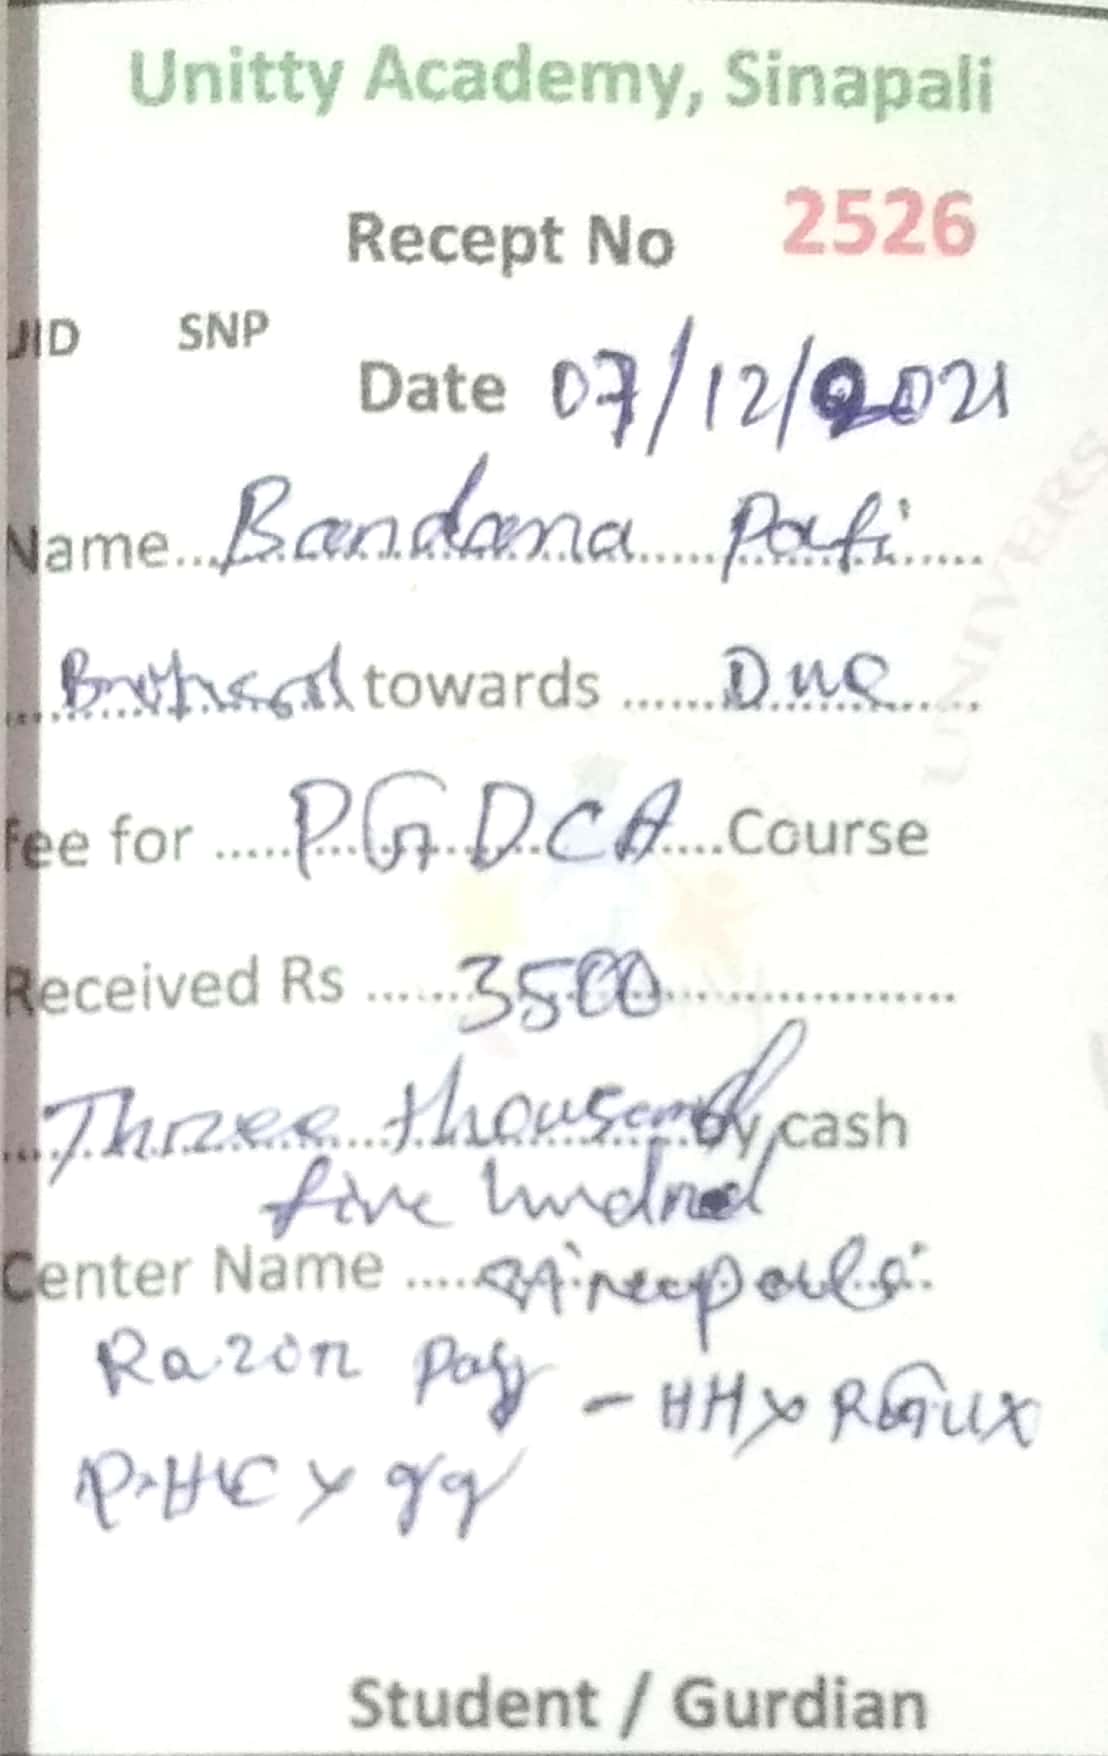 Unitty Academy, Sinapali
Recept No 2526
JID SNP
Date 07/12/2021
Name...Bandana Pati
towards ...... Due
Fee for ..... PGDCA .... Course
Received Rs ...... 3500
Three thousand by cash
five hundred
Center Name ..... Sinapali
Razor Pay - HHyRGUX
Student / Gurdian